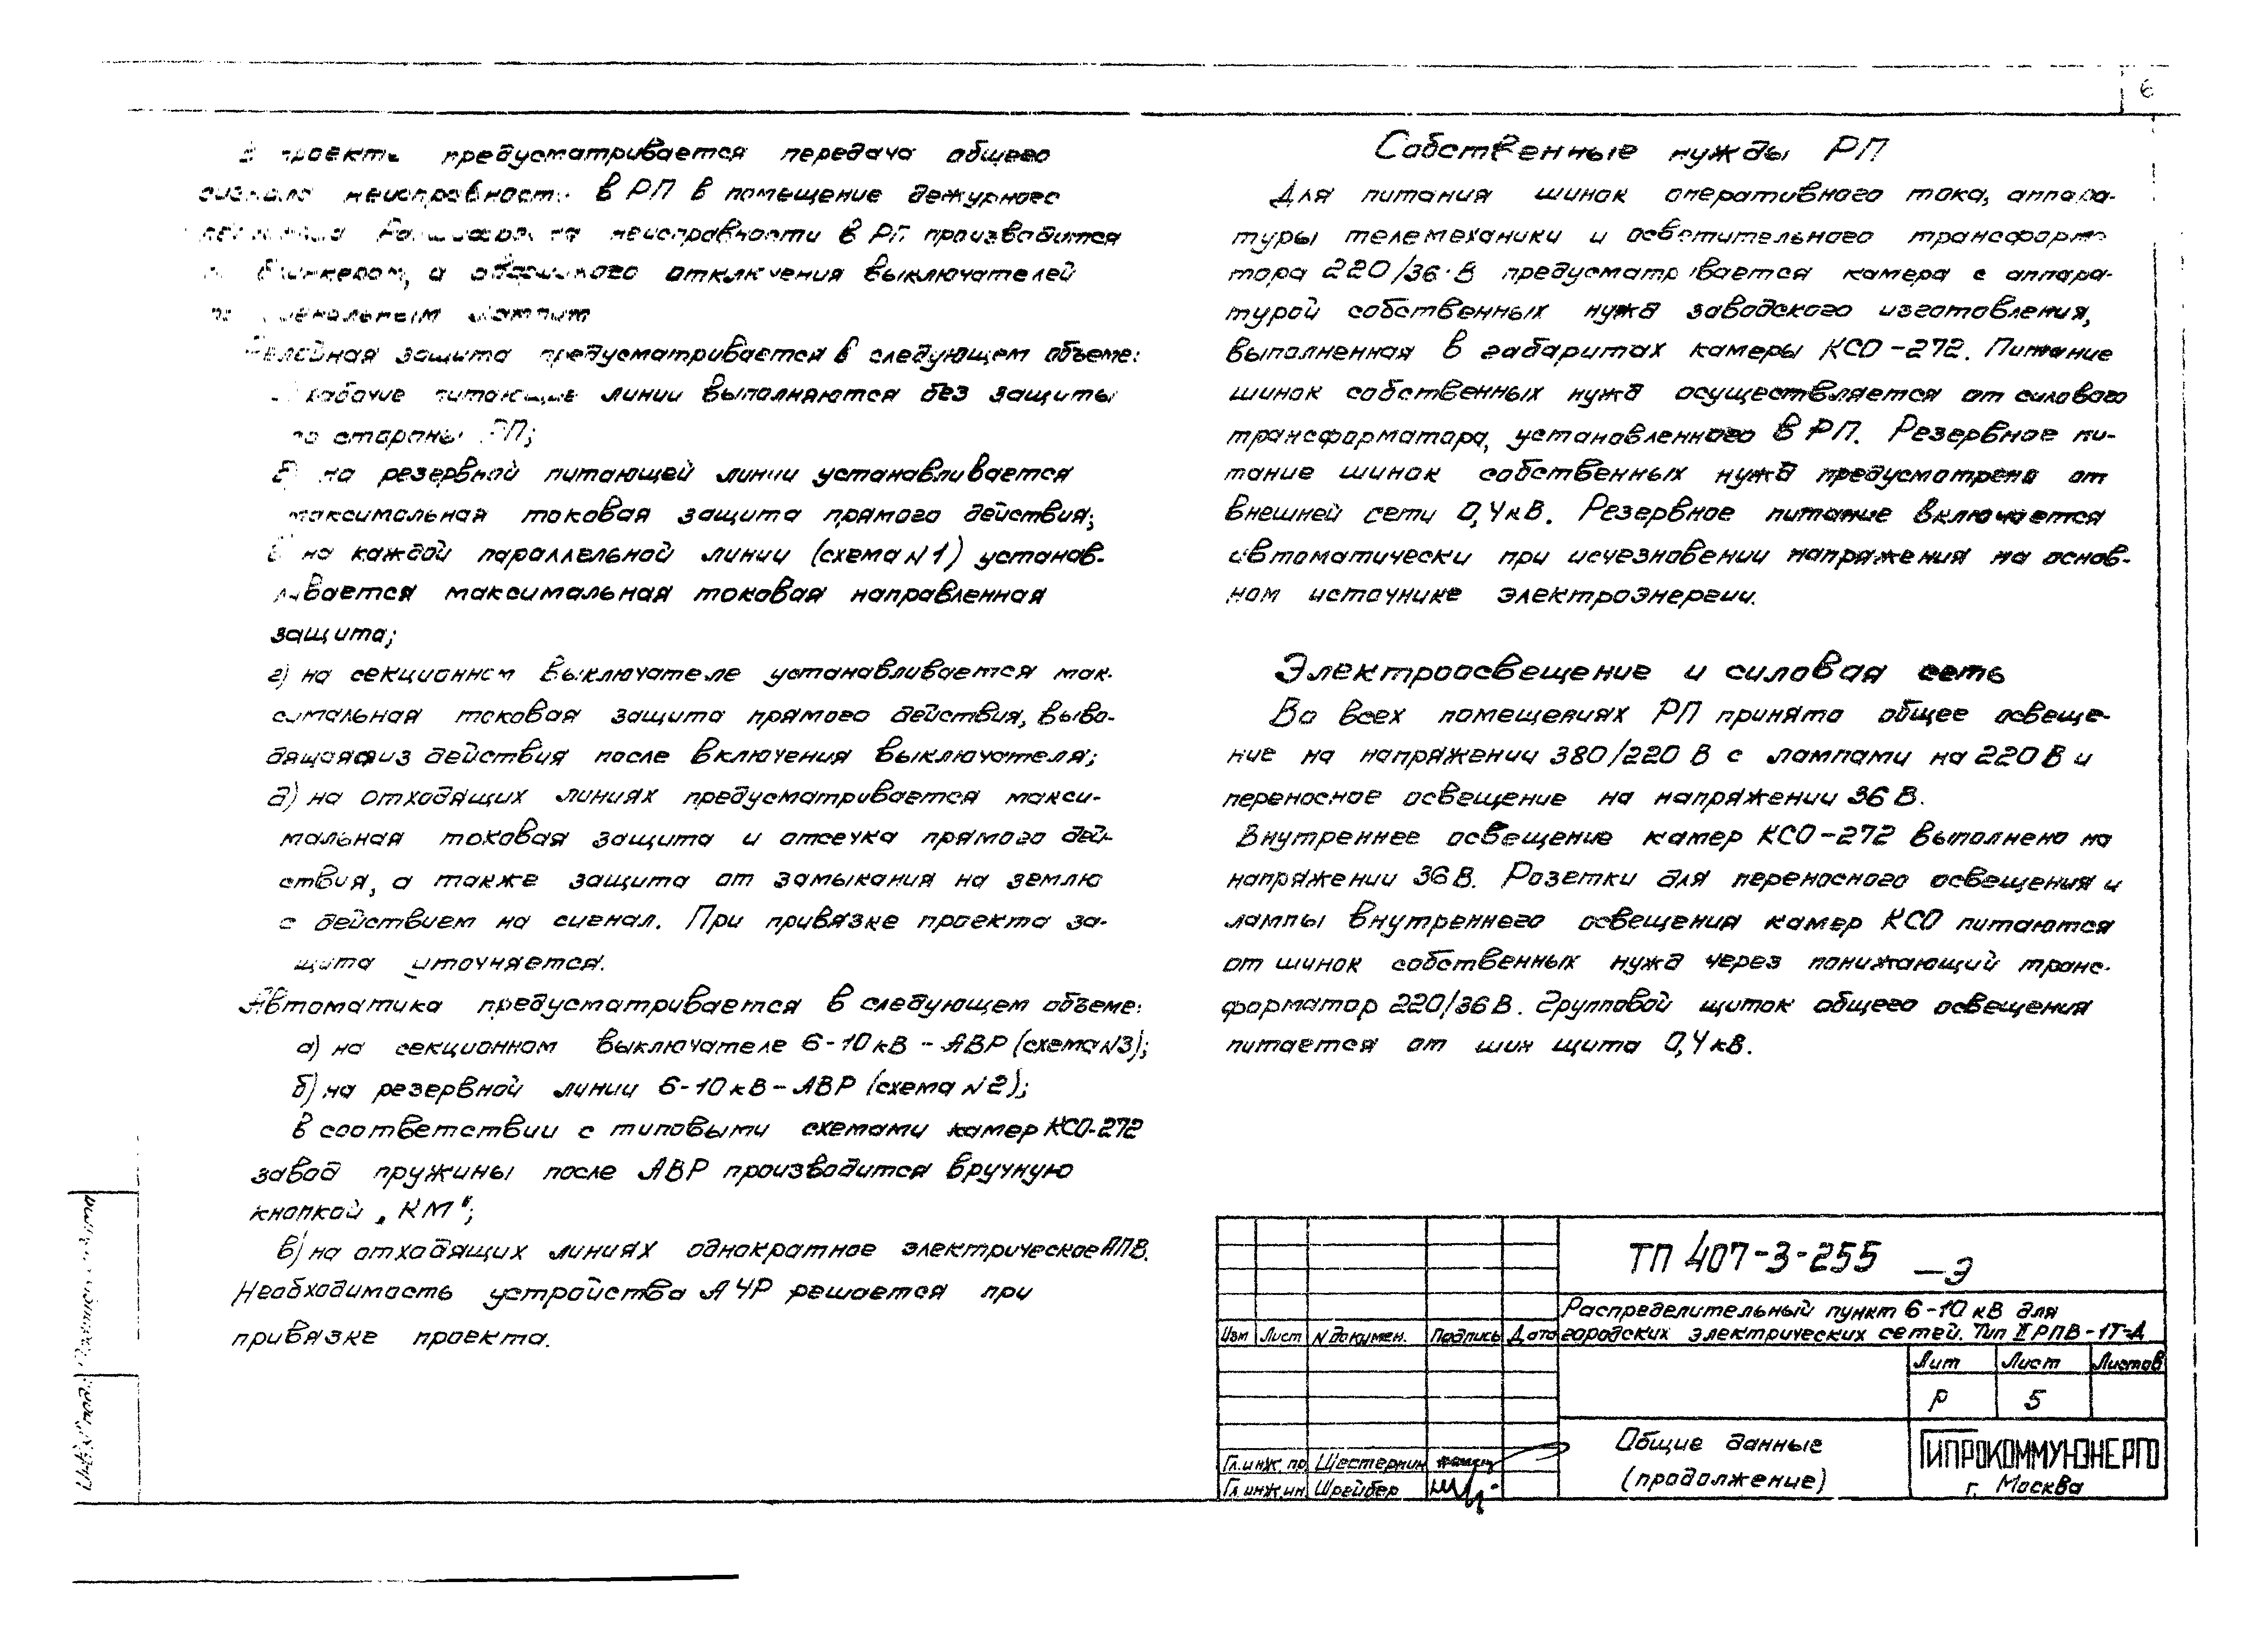 6
В проекте предусматривается передача общего
сигнала неисправности в РП в помещение дежурного
Расшифровка неисправности в РП производится
блинкером, а аварийного отключения выключателей
по сигнальным лампам
Релейная защита предусматривается в следующем объеме:
рабочие питающие линии выполняются без защиты
со стороны РП;
б) на резервной питающей линии устанавливается
максимальная токовая защита прямого действия;
в на каждой параллельной линии (схема N1) установ-
ливается максимальная токовая направленная
защита;
г) на секционном выключателе устанавливается мак-
симальная токовая защита прямого действия, выво-
дящаяся из действия после включения выключателя;
д) на отходящих линиях предусматривается макси-
мальная токовая защита и отсечка прямого дей-
ствия, а также защита от замыкания на землю
с действием на сигнал. При привязке проекта за-
щита уточняется.
Автоматика предусматривается в следующем объеме:
а) на секционном выключателе 6-10 кВ - АВР (схема N3);
б) на резервной линии 6-10 кВ - АВР (схема N2);
в соответствии с типовыми схемами камер КСО-272
завод пружины после АВР производится вручную
кнопкой „КМ";
в) на отходящих линиях однократное электрическое АПВ.
Необходимость устройства АЧР решается при
привязке проекта.
Собственные нужды РП
Для питания шинок оперативного тока, аппара-
туры телемеханики и осветительного трансформа
тора 220/36 В предусматривается камера с аппара-
турой собственных нужд заводского изготовления,
выполненная в габаритах камеры КСО-272. Питание
шинок собственных нужд осуществляется от силового
трансформатора, установленного в РП. Резервное пи-
тание шинок собственных нужд предусмотрено от
внешней сети 0,4 кВ. Резервное питание включается
автоматически при исчезновении напряжения на основ-
ном источнике электроэнергии.
Электроосвещение и силовая сеть
Во всех помещениях РП принято общее освеще-
ние на напряжении 380/220 В с лампами на 220 В и
переносное освещение на напряжении 36 В.
Внутреннее освещение камер КСО-272 выполнено на
напряжении 36 В. Розетки для переносного освещения и
лампы внутреннего освещения камер КСО питаются
от шинок собственных нужд через понижающий транс-
форматор 220/36 В. Групповой щиток общего освещения
питается от шин щита 0,4 кВ.
ТП 407-3-255 -Э
Распределительный пункт 6-10 кВ для
городских электрических сетей. Тип II РПВ-1Т-А
Изм Лист N докумен. Подпись Дата
Лит Лист Листов
Р 5
Общие данные
(продолжение)
ГИПРОКОММУНЭНЕРГО
г. Москва
Гл.инж.пр. Шестернин
Гл.инж.ин. Шрейбер
Инв.N подл.